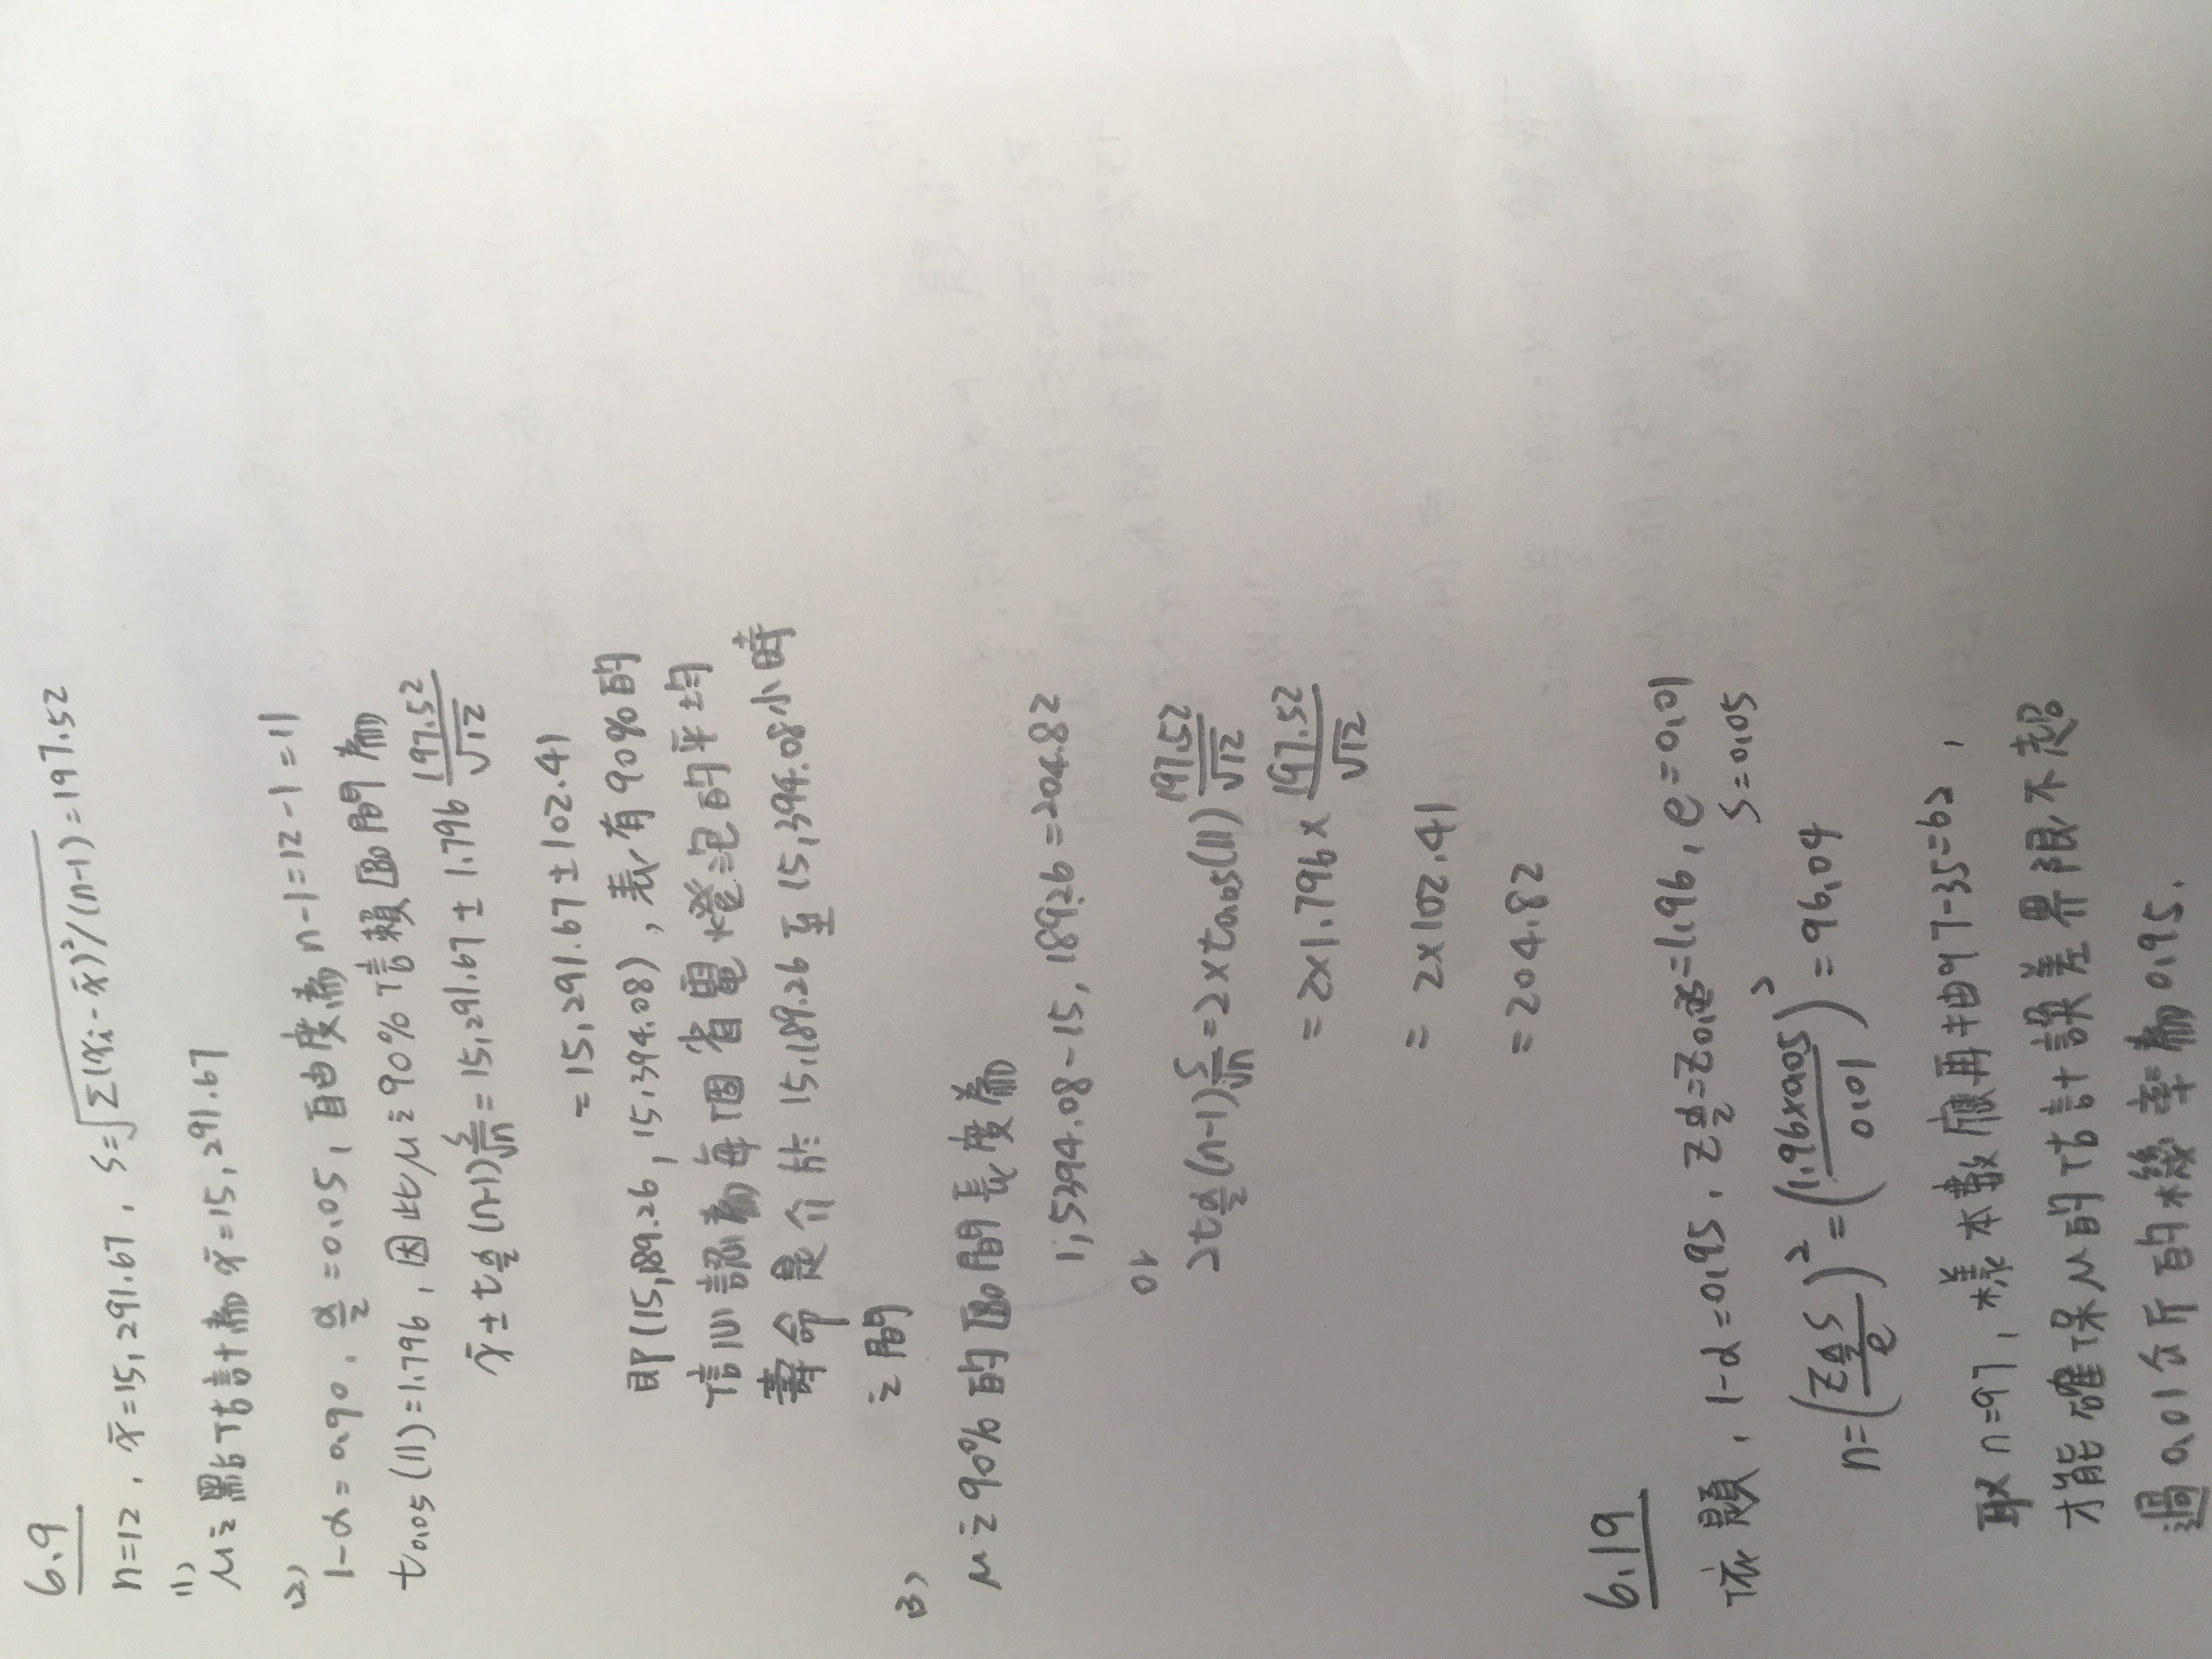 6.9
n=12, x̄=15,291.67, s=√Σ(xi-x̄)²/(n-1)=197.52
(1)
μ之點估計為 x̄=15,291.67
(2)
1-α=0.90, α/2=0.05, 自由度為 n-1=12-1=11
t0.05(11)=1.796, 因此μ之90%信賴區間為
x̄±tα/2(n-1)s/√n=15,291.67±1.796 197.52/√12
=15,291.67±102.41
即(15,189.26, 15,394.08), 表有90%的
信心認為每個省電燈泡的平均
壽命是介於 15,189.26 至 15,394.08小時
之間
(3)
μ之90%的區間長度為
1,5394.08-15,189.26=204.82
or
2tα/2(n-1)s/√n=2×t0.05(11) 197.52/√12
=2×1.796×197.52/√12
= 2×102.41
=204.82
6.19
依題, 1-α=0.95, zα/2=z0.025=1.96, e=0.01
s=0.05
n=(zα/2 s/e)²=(1.96×0.05/0.01)²=96.04
取 n=97, 樣本數應再抽97-35=62,
才能確保μ的估計誤差界限不超
過0.01公斤的機率為0.95.